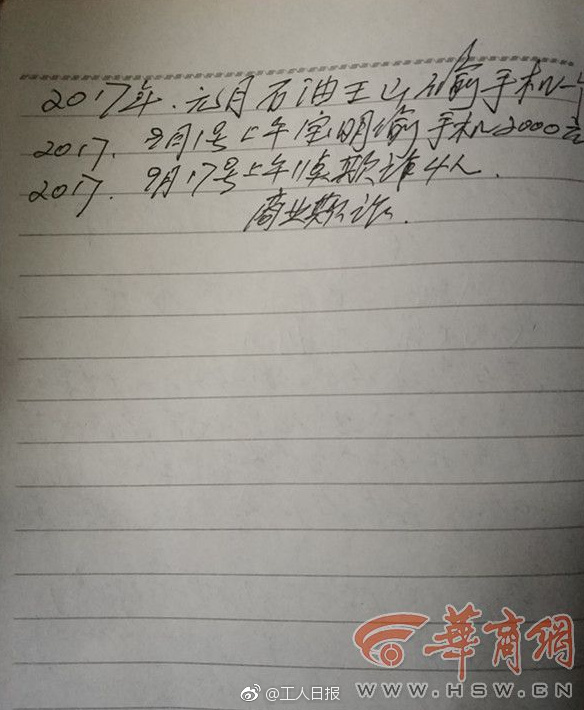 2017年.元月石油王 偷手机一
2017. 8月1号上午宝明偷手机2000元
2017. 9月17号上午11点欺诈4人.
商业欺诈.
華商網
WWW.HSW.CN
@工人日报